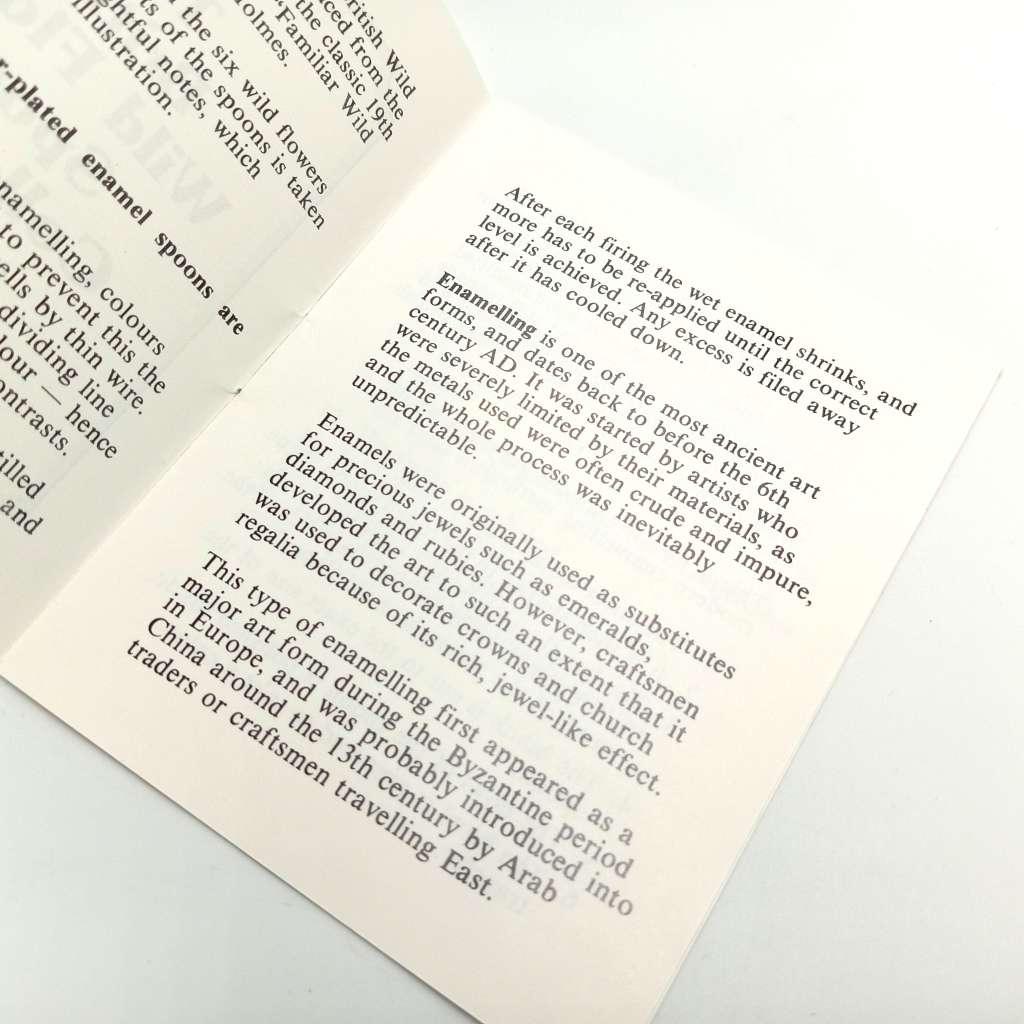 British Wild
from the
the classic 19th
"Familiar Wild
Holmes.
the six wild flowers
of the spoons is taken
notes, which
illustration.
enamel spoons are
enamelling, colours
to prevent this the
by thin wire.
dividing line
— hence
contrasts.
and
After each firing the wet enamel shrinks, and
more has to be re-applied until the correct
level is achieved. Any excess is filed away
after it has cooled down.
Enamelling is one of the most ancient art
forms, and dates back to before the 6th
century AD. It was started by artists who
were severely limited by their materials, as
the metals used were often crude and impure,
and the whole process was inevitably
unpredictable.
Enamels were originally used as substitutes
for precious jewels such as emeralds,
diamonds and rubies. However, craftsmen
developed the art to such an extent that it
was used to decorate crowns and church
regalia because of its rich, jewel-like effect.
This type of enamelling first appeared as a
major art form during the Byzantine period
in Europe, and was probably introduced into
China around the 13th century by Arab
traders or craftsmen travelling East.